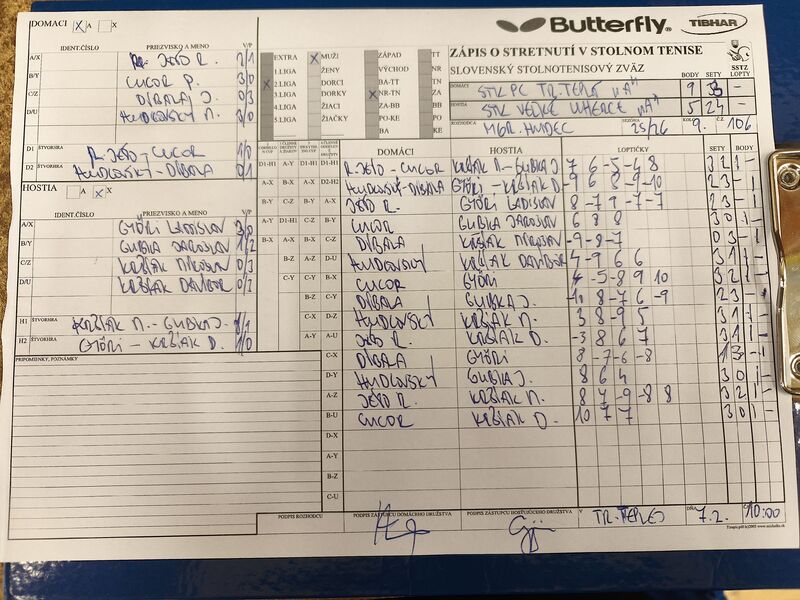 DOMACI X A X
Butterfly TIBHAR
IDENT.ČÍSLO PRIEZVISKO A MENO V/P
A/X JEŽO R. 2/1
B/Y CUCOR P. 3/0
C/Z DIBALA J. 0/3
D/U HUDCOVSKÝ M. 3/0
D1 ŠTVORHRA R. JEŽO - CUCOR 1/0
D2 HUDCOVSKÝ - DIBALA 0/1
HOSTIA A X X
IDENT.ČÍSLO PRIEZVISKO A MENO V/P
A/X GYÖRI LADISLAV
B/Y GUBKA JAROSLAV 1/2
C/Z KRŠIAK MIROSLAV
D/U KRŠIAK DAVIDOR
H1 ŠTVORHRA KRŠIAK M. - GUBKA J.
H2 ŠTVORHRA GYÖRI - KRŠIAK D. 1/0
PRIPOMIENKY, POZNÁMKY
EXTRA X MUŽI ZÁPAD TT
1.LIGA ŽENY VÝCHOD NR
X 2.LIGA DORCI BA-TT TN
3.LIGA DORKY X NR-TN ZA
4.LIGA ŽIACI ZA-BB BB
5.LIGA ŽIAČKY PO-KE PO
BA KE
ZÁPIS O STRETNUTÍ V STOLNOM TENISE
SLOVENSKÝ STOLNOTENISOVÝ ZVÄZ SSTZ
BODY SETY LOPTY
DOMÁCI STK PC TR. TEPLÁ "A" 9 –
HOSTIA STK VEĽKÉ UHERCE "A" 5 24 –
ROZHODCA MGR. HUDEC 25/26 KOLO 9. Č. 106
DOMÁCI HOSTIA LOPTIČKY SETY BODY
D1-H1 R. JEŽO - CUCOR KRŠIAK M - GUBKA J 7 6 -5 -6 8 3 2 1 –
D2-H2 HUDCOVSKÝ - DIBALA GYÖRI - KRŠIAK D. -9 6 8 -9 -10 2 3 – 1
A-X JEŽO R. GYÖRI LADISLAV 8 -7 9 -7 -7 2 3 – 1
B-Y CUCOR GUBKA JAROSLAV 6 8 8 3 0 1 –
C-Z DIBALA KRŠIAK MIROSLAV -9 -8 -7 0 3 – 1
D-U HUDCOVSKÝ KRŠIAK DAVIDOR 4 -9 6 6 3 1 1 –
B-X CUCOR GYÖRI 4 -5 -8 9 10 3 2 1 –
C-Y DIBALA GUBKA J. 8 -7 6 -9 2 3 – 1
D-Z HUDCOVSKÝ KRŠIAK M. 3 8 -9 5 3 1 1 –
A-U JEŽO R. KRŠIAK D. -3 8 6 7 3 1 1 –
C-X DIBALA GYÖRI 8 -7 -6 -8 1 3 – 1
D-Y HUDCOVSKÝ GUBKA J. 8 6 4 3 0 1 –
A-Z JEŽO R. KRŠIAK M. 8 -9 -8 8 3 2 1 –
B-U CUCOR KRŠIAK D. 10 7 7 3 0 1 –
D-X
A-Y
B-Z
C-U
PODPIS ROZHODCU PODPIS ZÁSTUPCU DOMÁCEHO DRUŽSTVA PODPIS ZÁSTUPCU HOSŤUJÚCEHO DRUŽSTVA V TR. TEPLEJ DŇA 7.2. 10:00